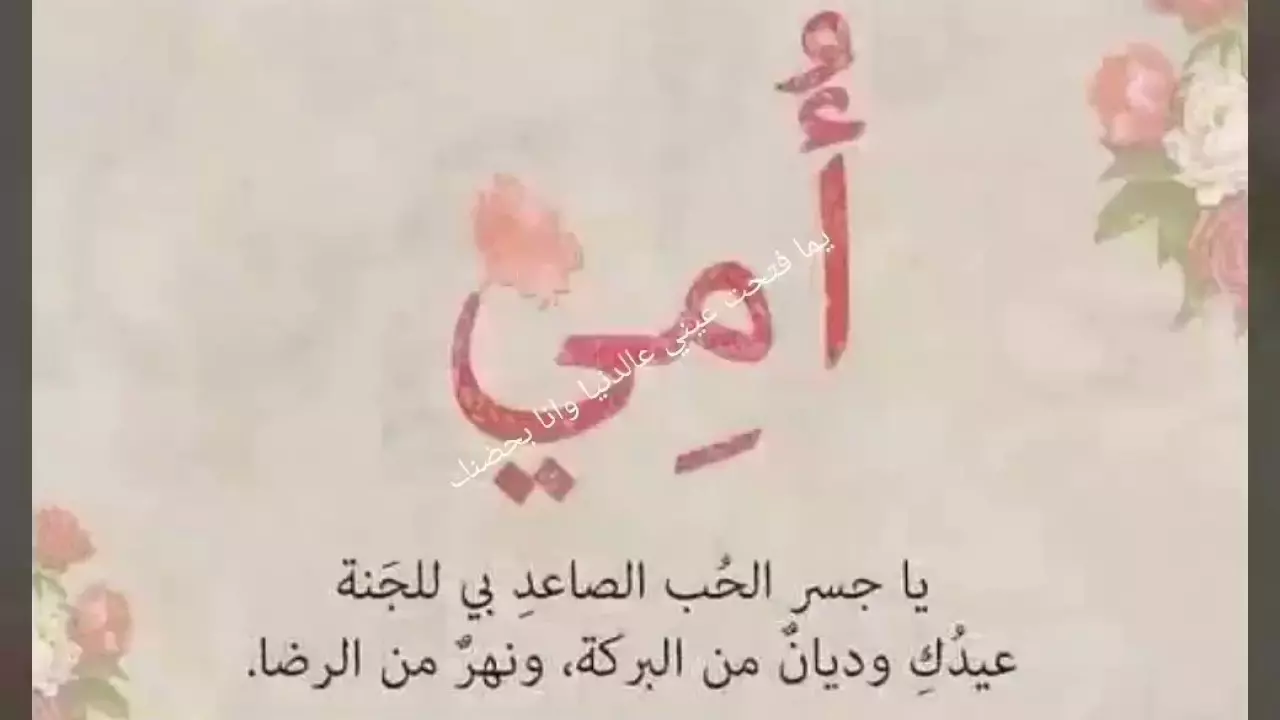 أُمِي
يما فتحت عيني عالدنيا وانا بحضنك
يا جسر الحُب الصاعدِ بي للجَنة
عيدُكِ وديانٌ من البركة، ونهرٌ من الرضا.